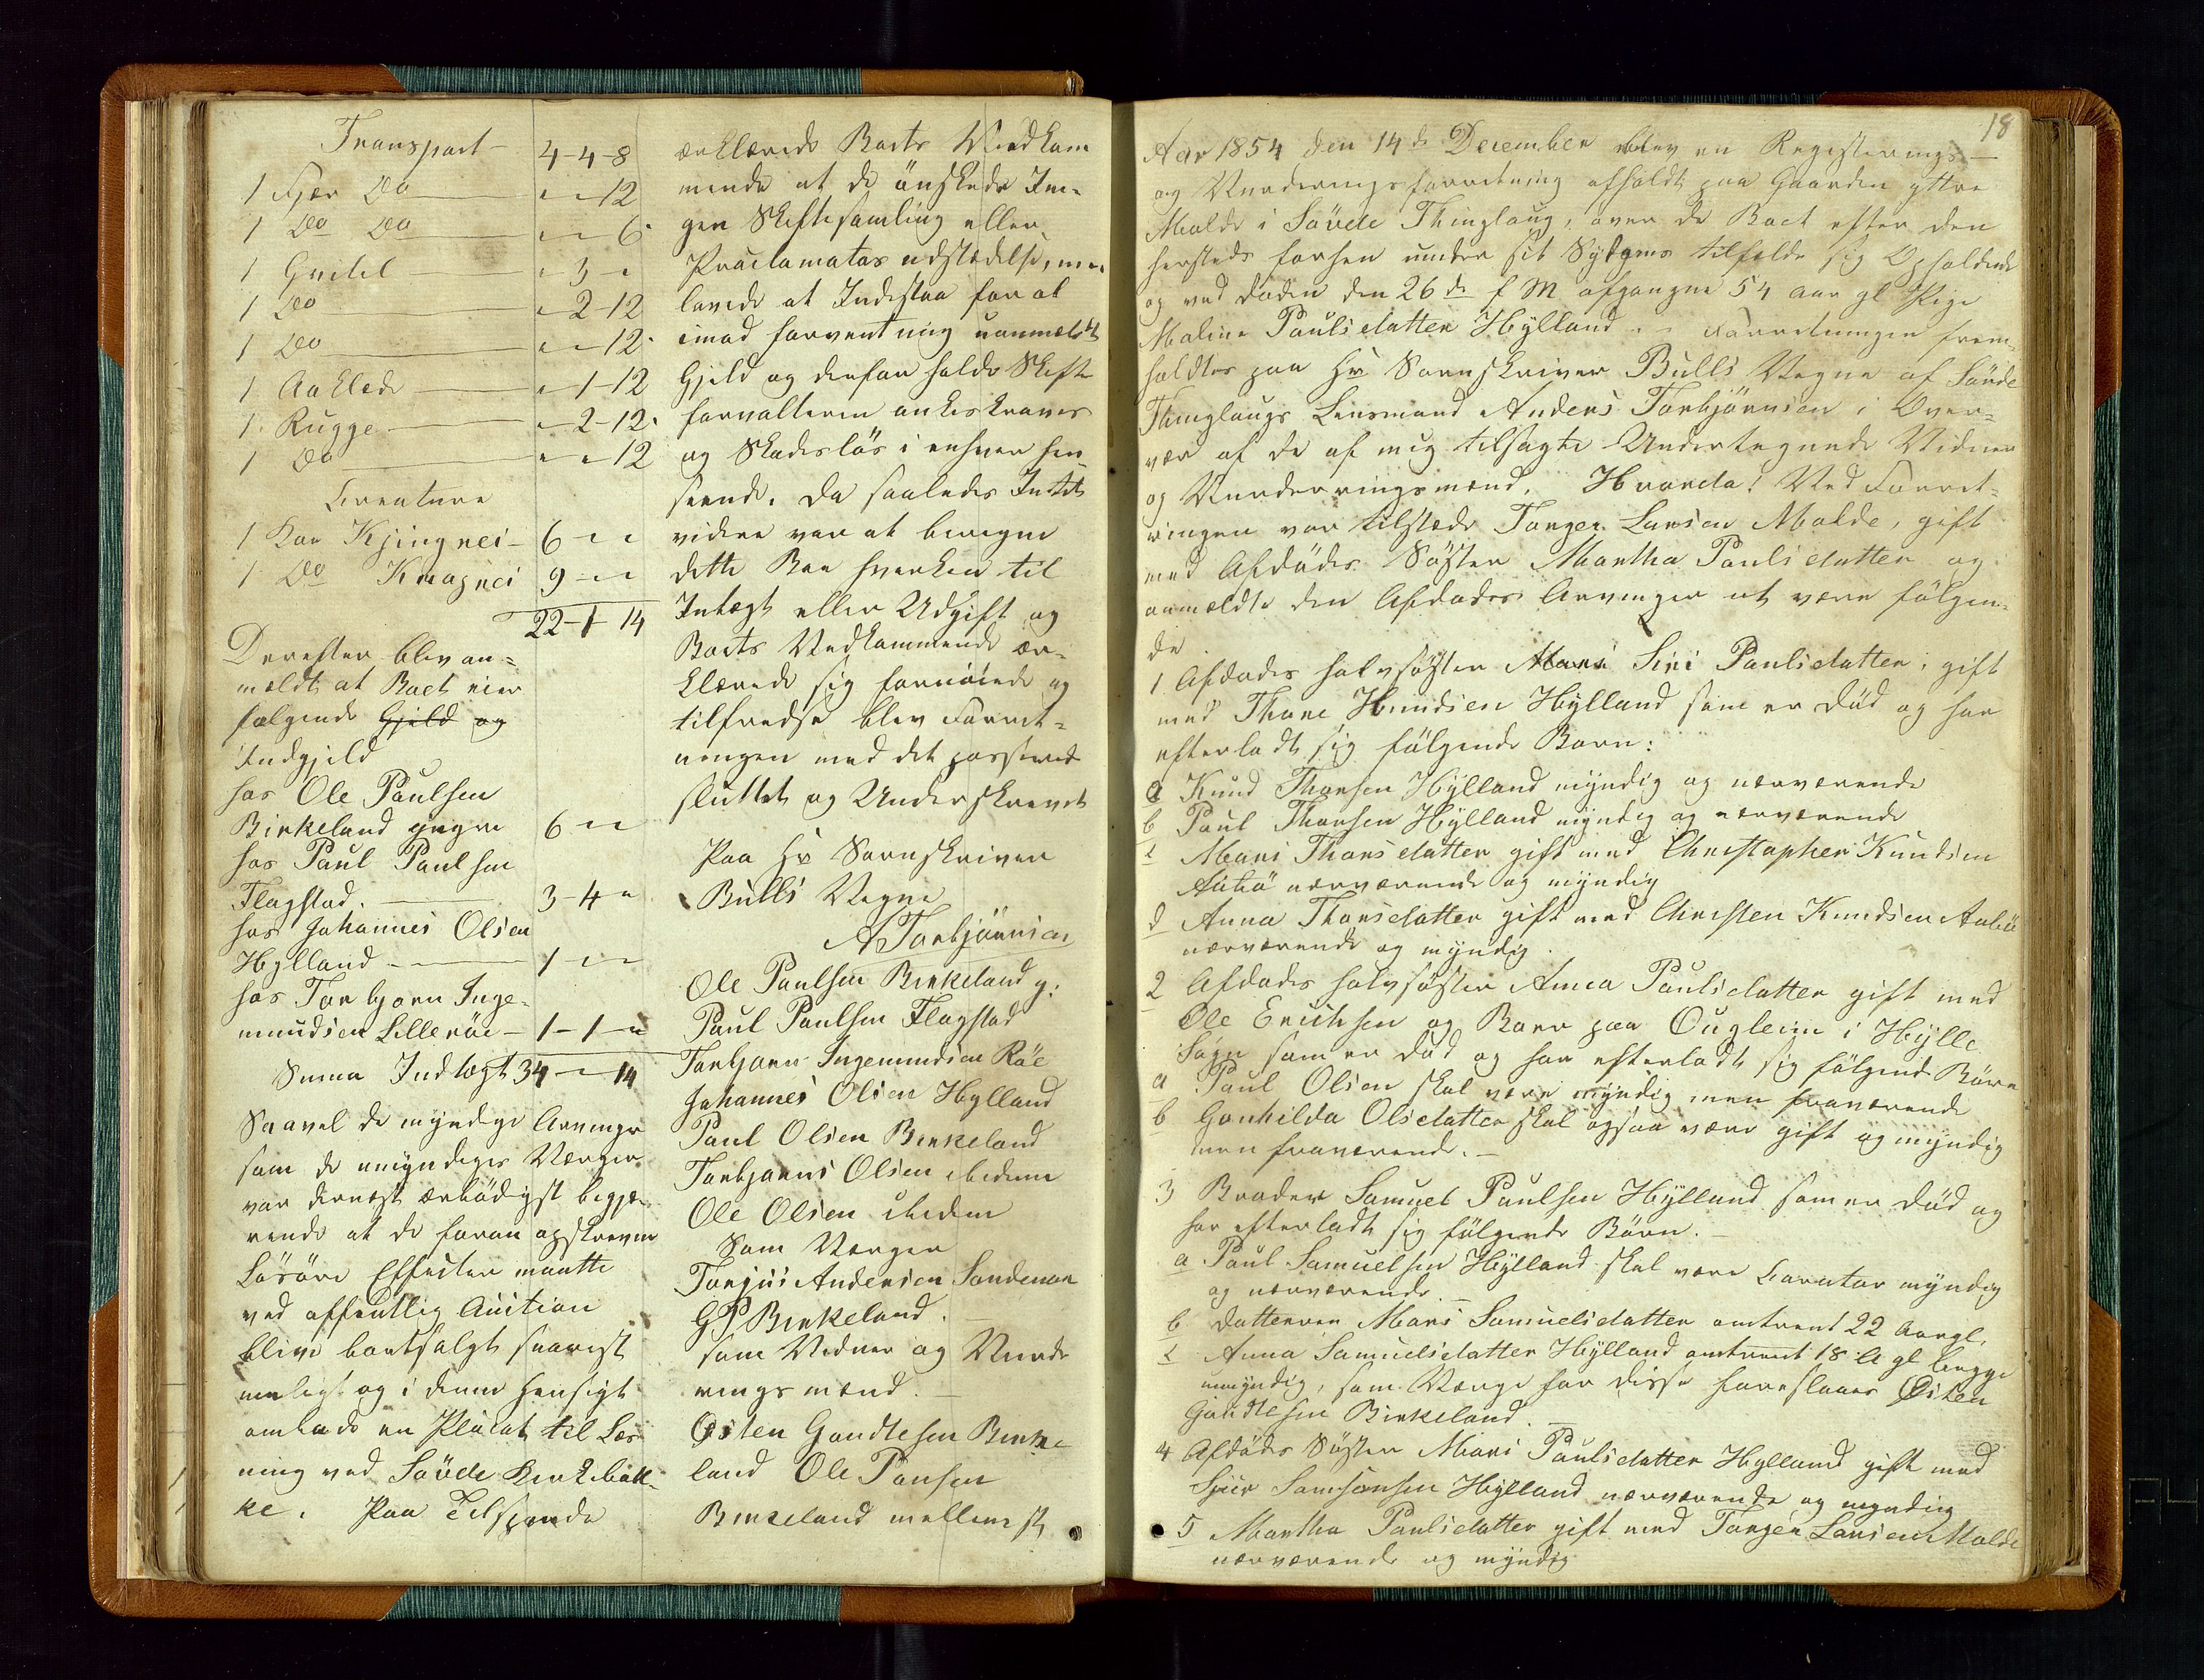 Transport - 4-4-8
1 Fjær Do " - 12
1 Do Do " - 6
1 Gritel " 3 "
1 Do " 2-12
1 Do " " 12
1 Aaklæde " 1-12
1 Rugge " 2-12
1 Do " " 12
Creature
1 Koe Kjingrei - 6 " "
1 Do Kragrei 9 - " "
22-1-14
Derefter blev an=
mældt at Boet eier
følgende Gjeld og
Indgjeld
hos Ole Paulsen
Birkeland yngre 6 " "
hos Paul Paulsen
Flagstad. 3-4 "
hos Johannes Olsen
Hylland 1 - "
hos Torbjørn Inge-
mundsen Lillerøe - 1-1-"
Suma Indtægt 34 - " 14
Saavel de myndige Arvinger
som de umyndiges Værger
var dernæst ærbødigst begjæ-
rende at de foran opskrevne
Løsøre Effecter maatte
ved offentlig Auction
blive bortsolgt snarest
muligt og i denne Hensigt
ombade en Placat til Læs-
ning ved Søvde Kirkebak-
ke. Paa Tilspørende
ærklærede Boets Vedkom
mende at de ønskede In-
gen Skiftesamling eller
Proclamatas udstædelse, men
lovede at Indestaa for al
imod forventning uanmeldt
Gjeld og derfor holde Skifte
forvalteren ankeskraves
og Skadesløs i enhver Hen-
seende. Da saaledes Intet
videre var at beregne
dette Boe hverken til
Indtægt eller Udgift og
Boets Vedkommende ær-
klærede sig fornøiede og
tilfredse blev Forret-
ningen med det passerede
sluttet og Underskrevet
Paa Hr Sorenskriver
Bulls Vegne
A Torbjørnsen
Ole Paulsen Birkeland y:
Paul Paulsen Flagstad
Torbjørn Ingemundsen Røe
Johannes Olsen Hylland
Paul Olsen Birkeland
Torbjørns Olsen ibidem
Ole Olsen ibidem
Som Værger
Torjus Andersen Sandenon
G P Birkeland.
som Vidner og Vurde
ringsmænd.
Østen Gautesen Birke
land Ole Paulsen
Birkeland mellemste
18
Aar 1854 den 14de December blev en Registerings-
og Vurderingsforretning afholdt paa Gaarden yttre
Molde i Søvde Thinglaug, over de Boet efter den
hersteds forhen under sit Sygdoms tilfælde sig Opholdende
og ved døden den 26de f M afgangne 54 aar gl Pige
Maline Paulsdatter Hylland. - Forretningen frem-
holdtes paa Hr Sorenskriver Bulls Vegne af Søvde
Thinglaugs Lensmand Anders Torbjørnsen i Over-
vær af de af mig tilsagte Undertegnede Vidner
og Vurderringsmænd. Hvorda! Ved Forret-
ningen var tilstæde Torger Larsen Molde, gift
med Afdødes Søster Martha Paulsdatter og
anmældte den Afdødes Arvinger at være følgen-
de
1 Afdødes halvsøster Mari Siri Paulsdatter, gift
med Thore Knudsen Hylland som er død og har
efterladt sig følgende Børn:
a Knud Thorsen Hylland myndig og nærværende
b Paul Thorsen Hylland myndig og nærværende
c Mari Thorsdatter gift med Christopher Knudsen
Aabø nærværende og myndig
d Anna Thorsdatter gift med Christen Knudsen Aabø
nærværende og myndig.
2 Afdødes halvsøster Anna Paulsdatter gift med
Ole Erichsen og Boer paa Ougleim i Hylle
Sogn som er død og har efterladt sig følgende Børn
a Paul Olsen skal være myndig men fraværende
b Gunhilda Olsdatter skal ogsaa være gift og myndig
men fraværende. -
3 Broder Samuel Paulsen Hylland som er død og
har efterladt sig følgende Børn. -
a Paul Samuelsen Hylland skal være Curator myndig
og nærværende. -
b datteren Mari Samuelsdatter omtrent 22 Aargl.
c Anna Samuelsdatter Hylland omtrent 18 A gl begge
umyndig, som Værge for disse foreslaaes Østen
Gautesen Birkeland. -
4 Afdødes Søster Mari Paulsdatter Hylland gift med
Siur Samsonsen Hylland nærværende og myndig
5 Martha Paulsdatter gift med Torger Larsen Molde
nærværende og myndig